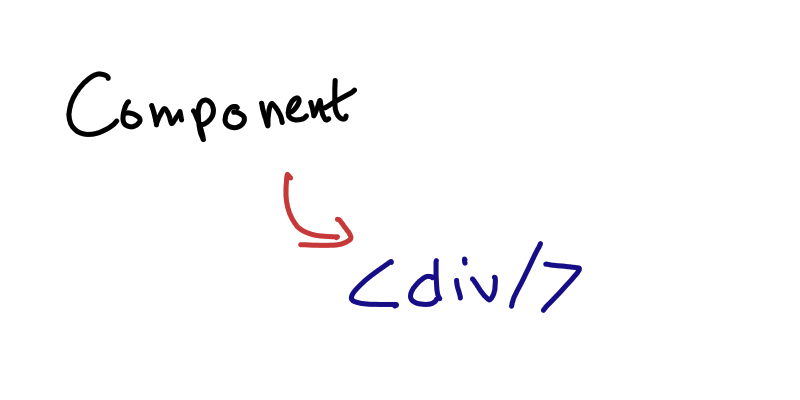 Component
<div/>